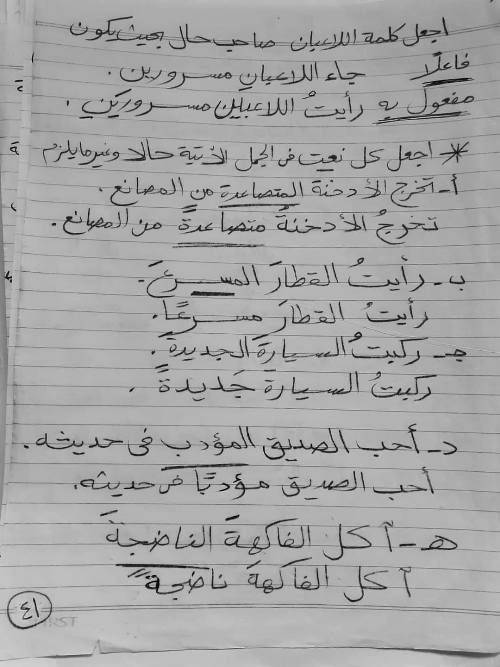 اجعل كلمة اللاعبان صاحب حال بحيث يكون
فاعلًا جاء اللاعبانِ مسرورين.
مفعول به رأيتُ اللاعبَيْنِ مسرورَيْنِ.
* اجعل كل نعت فى الجمل الآتية حالا وغير ما يلزم
أ- تخرج الأدخنة المتصاعدة من المصانع.
تخرجُ الأدخنةُ متصاعدةً من المصانع.
ب- رأيتُ القطارَ المسرعَ.
رأيتُ القطارَ مسرعًا.
جـ- ركبتُ السيارةَ الجديدةَ.
ركبتُ السيارةَ جَديدةً.
د- أحب الصديق المؤدب فى حديثه.
أحب الصديق مؤدبًا فى حديثه.
هـ- آكل الفاكهةَ الناضجةَ
آكل الفاكهةَ ناضجةً
٤١
FIRST